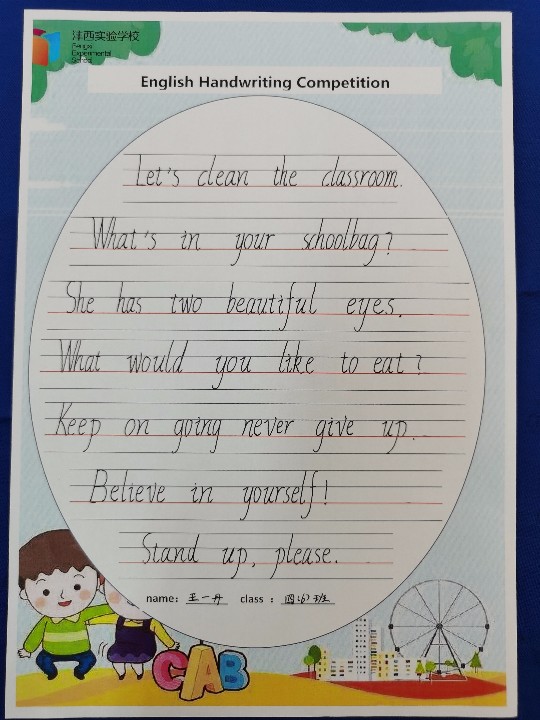 沣西实验学校
Fengxi
Experimental
School
English Handwriting Competition
Let's clean the classroom.
What's in your schoolbag?
She has two beautiful eyes.
What would you like to eat?
Keep on going never give up.
Believe in yourself!
Stand up, please.
name: 王一丹 class: 四(6)班
CAB